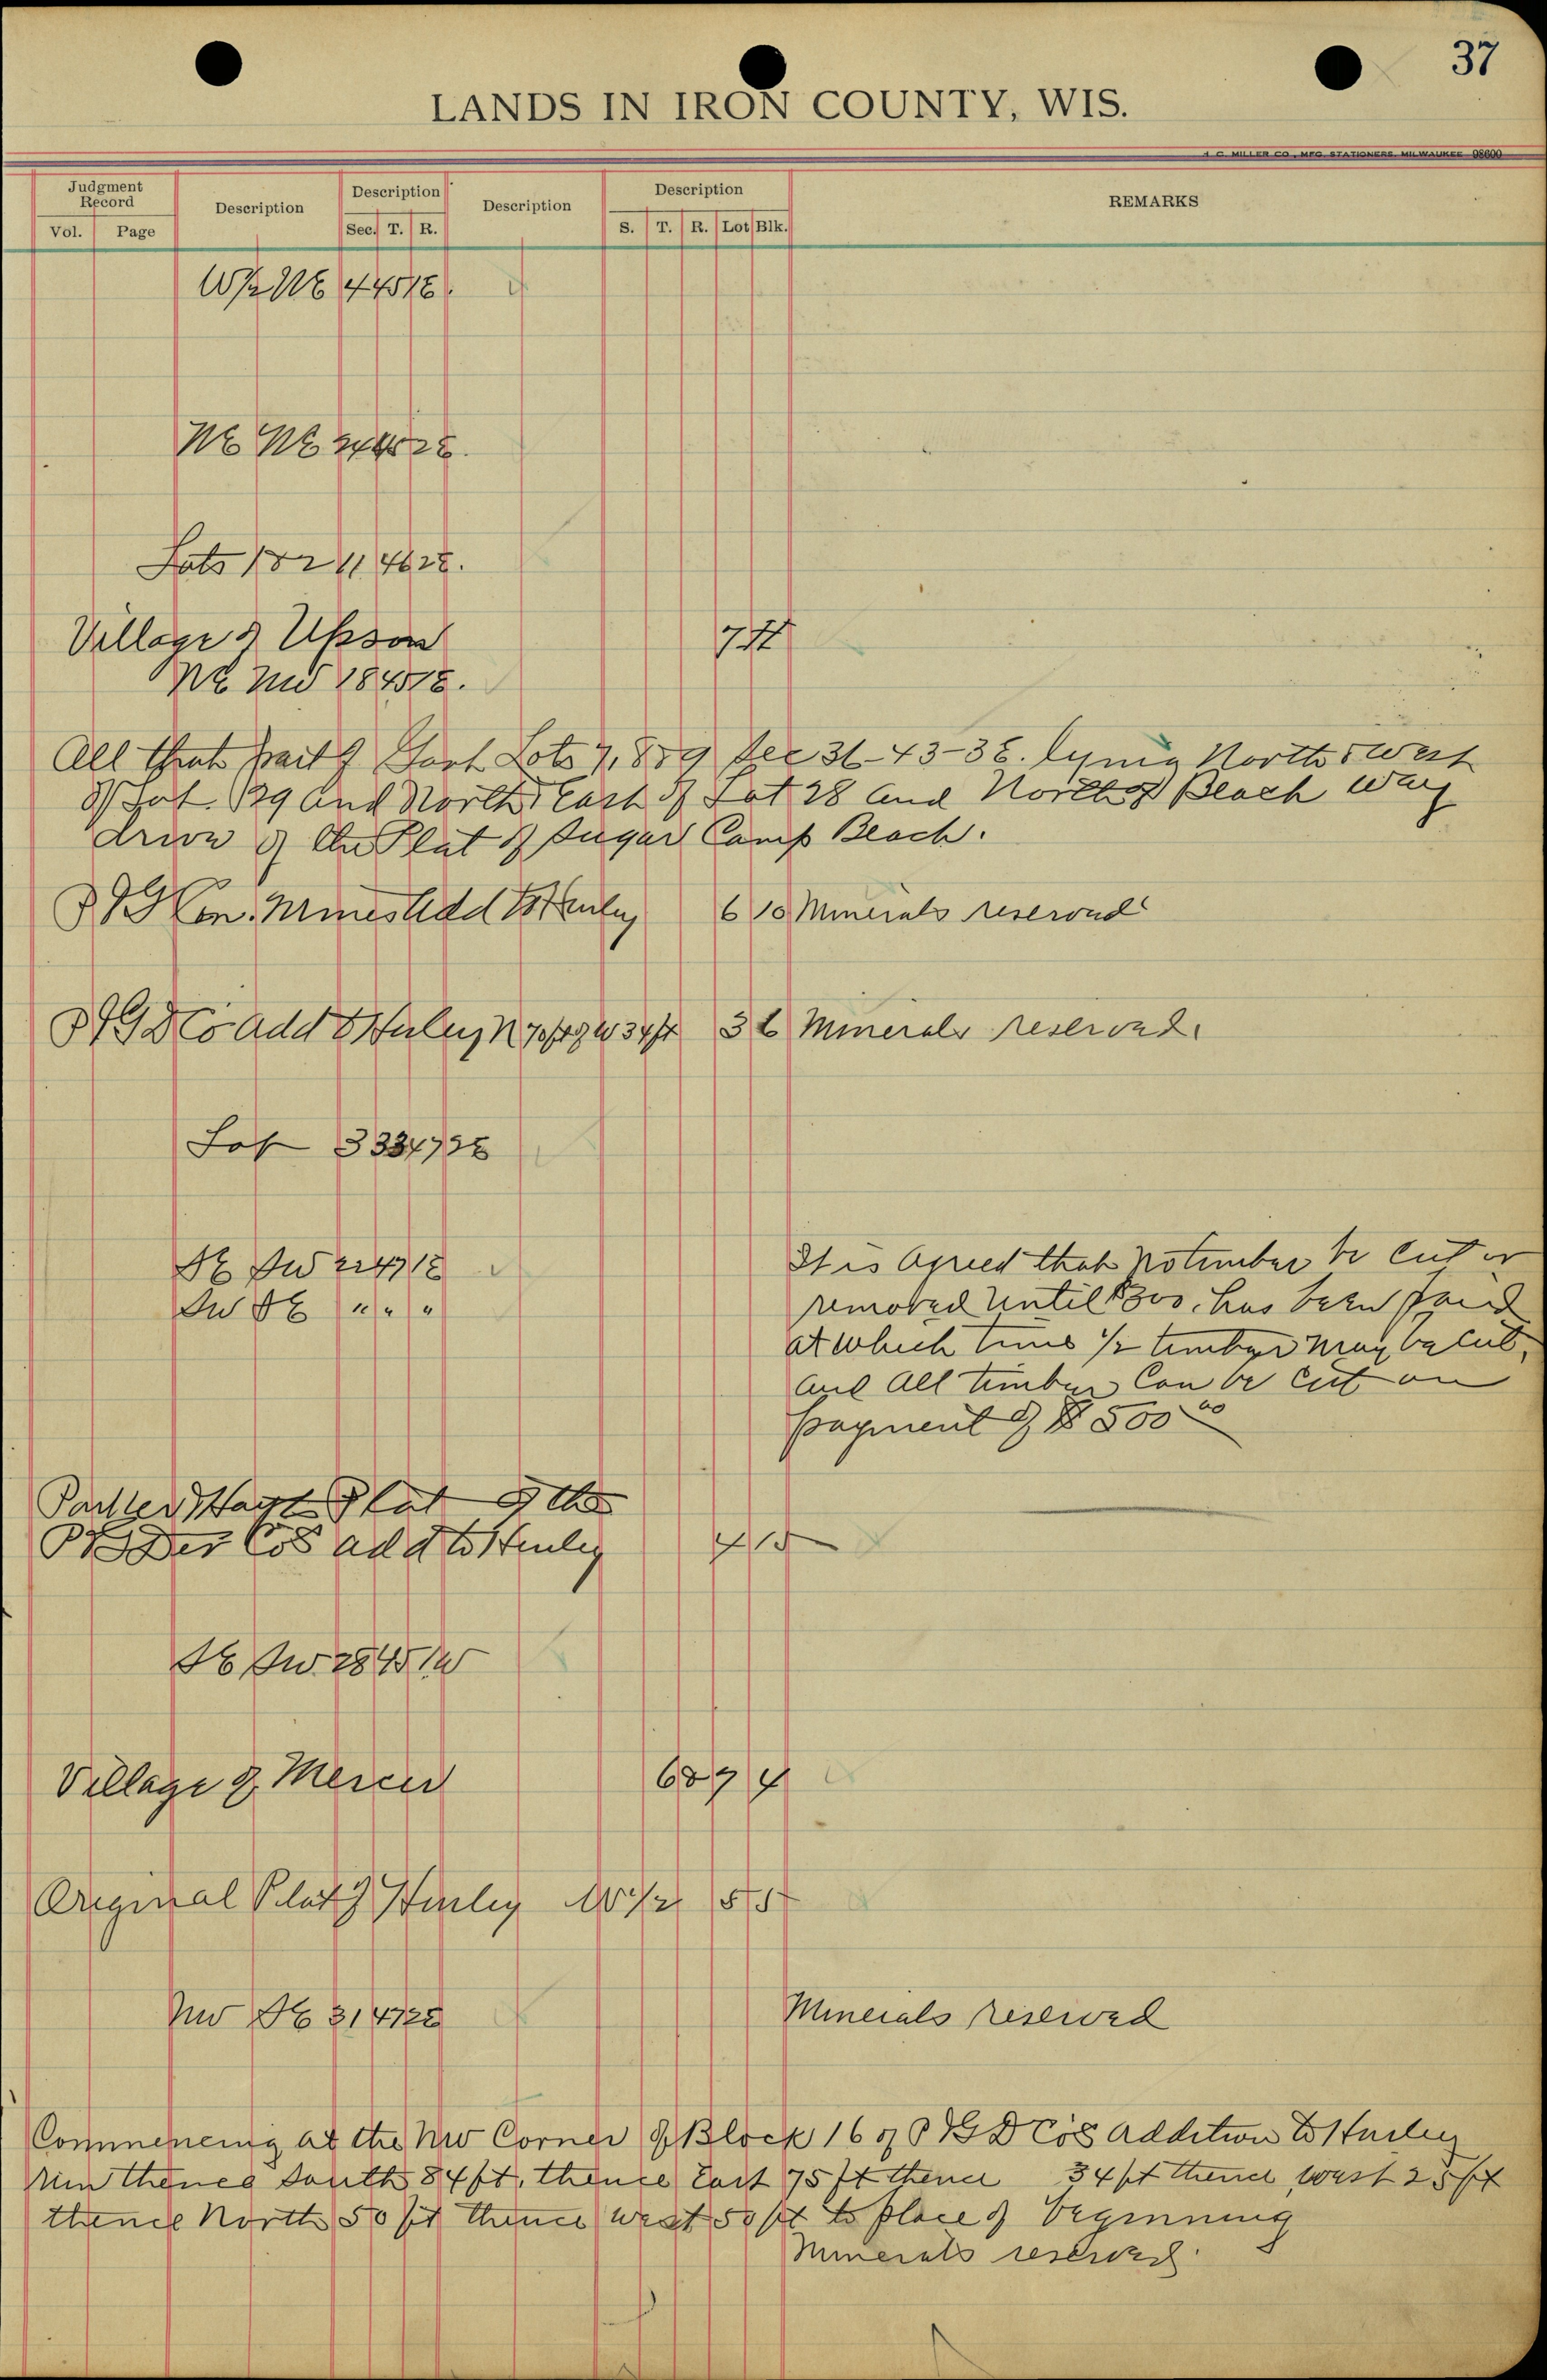 37
LANDS IN IRON COUNTY, WIS.
H. C. MILLER CO., MFG. STATIONERS, MILWAUKEE 98600
Judgment Record Description Description Description Description REMARKS
Vol. Page Sec. T. R. S. T. R. Lot Blk.
W½ NE 4 45 1E.
NE NE 45 2E.
Lots 1 & 2 11 46 2E.
Village of Upson 7 11
NE NW 18 45 1E.
All that part of Govt Lots 7, 8 & 9 Sec 31-43-3E. lying North & West
of Lot 29 and North & East of Lot 28 and North of Beach Way
drive of the Plat of Sugar Camp Beach.
Con. Mines Add to Hurley 6 10 Minerals reserved
Co Add to Hurley N 70 ft of W 34 ft 3 6 Minerals reserved.
Lot 3 33 47 3E
SE SW 22 47 1E It is agreed that no timber be cut or
SW SE " " " removed until $300. has been paid
at which time ½ timber may be cut,
and all timber can be cut on
payment of $500.00
Plat of the
Co's add to Hurley 4 15
SE SW 28 45 1W
Village of Mercer 6 & 7 4
Original Plat of Hurley W½ 5 5
NW SE 31 47 2E Minerals reserved
Commencing at the NW Corner of Block 16 of P B D Co's Addition to Hurley
run thence South 84 ft, thence East 75 ft thence 34 ft thence west 25 ft
thence North 50 ft thence west 50 ft to place of beginning
Minerals reserved.